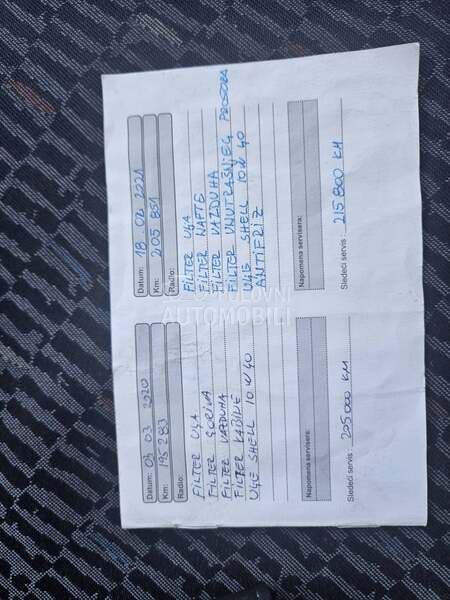 Datum: 03 03 2020
Km: 195 283
Radio:
FILTER ULJA
FILTER GORIVA
FILTER VAZDUHA
FILTER KABINE
ULJE SHELL 10 W 40
Napomena servisera:
Sledeći servis: 205 000 KM
Datum: 18. 02 2021
Km: 205 851
Radio:
FILTER ULJA
FILTER NAFTE
FILTER VAZDUHA
FILTER UNUTRAŠNJEG PROSTORA
ULJE SHELL 10 W 40
ANTIFRIZ
Napomena servisera:
Sledeći servis: 215 800 KM
POLOVNI
AUTOMOBILI